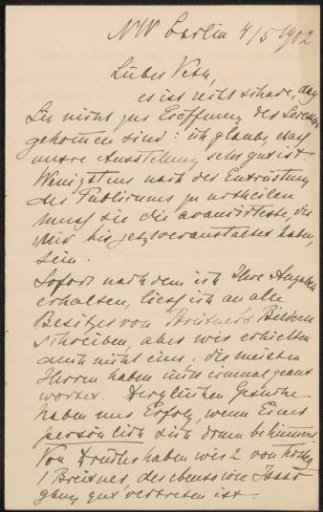 NW Berlin 4/5 1902
Lieber Veth,
es ist recht schade, dass
Sie nicht zur Eröffnung der Secession
gekommen sind: ich glaube, dass
unsre Ausstellung sehr gut ist.
Wenigstens nach der Entrüstung
des Publicums zu urtheilen
muss sie die avancirteste, die
wir bis jetzt veranstaltet haben,
sein.
Sofort nachdem ich Ihre Angaben
erhalten, liess ich an alle
Besitzer von Breitner's Bildern
schreiben, aber wir erhielten
auch nicht eins. die meisten
Herren haben nicht einmal geant
wortet. Dergleichen Gesuche
haben nur Erfolg, wenn Einer
persönlich sich drum bekümmert.
Von haben wir 2 von
1 Breitner, der ebenso wie
ganz gut vertreten ist.